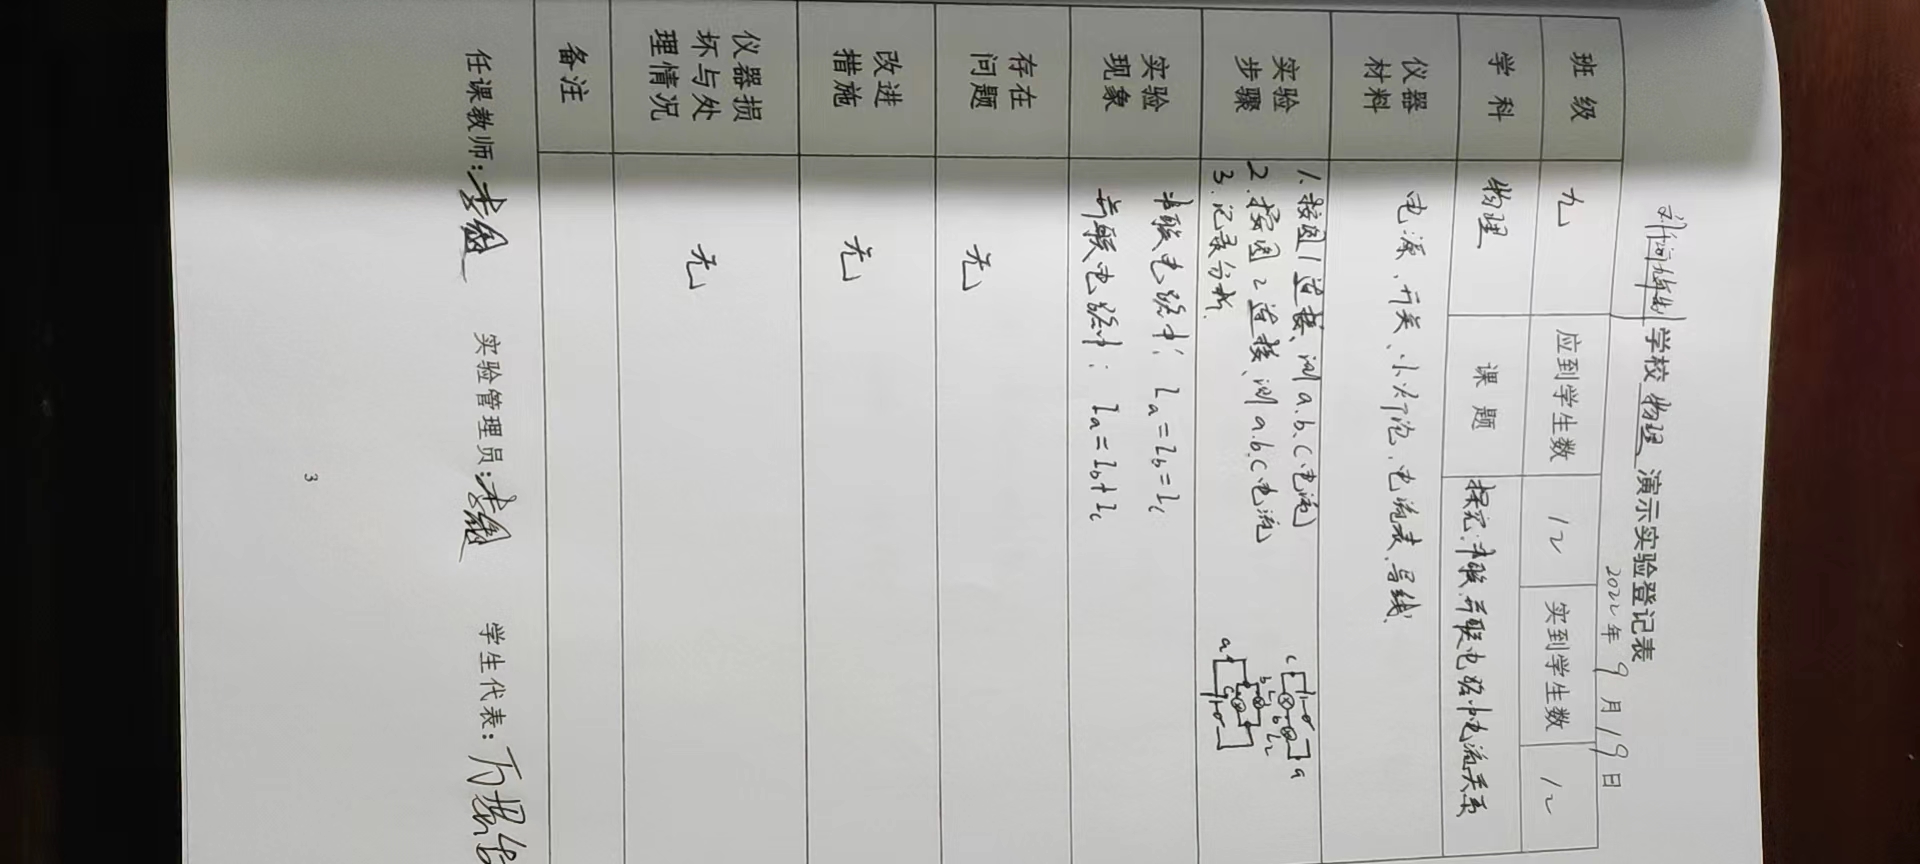 学校 物理 演示实验登记表
2022年 9 月 19 日
班级 九 应到学生数 12 实到学生数 12
学科 物理 课题 探究串联、并联电路中电流关系
仪器材料 电源、开关、小灯泡、电流表、导线.
实验步骤 1.按图1连接、测a.b.C电流
2.按图2连接、测a.b.C电流
3.记录分析.
c L1 b L2 a
a b c
实验现象 串联电路中: Ia=Ib=Ic
并联电路中: Ia=Ib+Ic
存在问题 无
改进措施 无
仪器损坏与处理情况 无
备注
任课教师: 实验管理员: 学生代表:
3